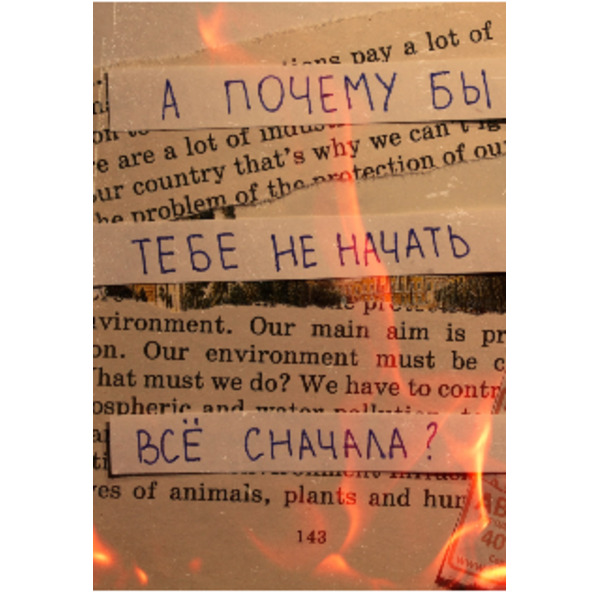 pay a lot of
А ПОЧЕМУ БЫ
e are a lot of
our country that's why we can't
he problem of the protection of our
ТЕБЕ НЕ НАЧАТЬ
vironment. Our main aim is
on. Our environment must be
hat must we do? We have to
ospheric and water
ВСЁ СНАЧАЛА?
es of animals, plants and
143
40
www